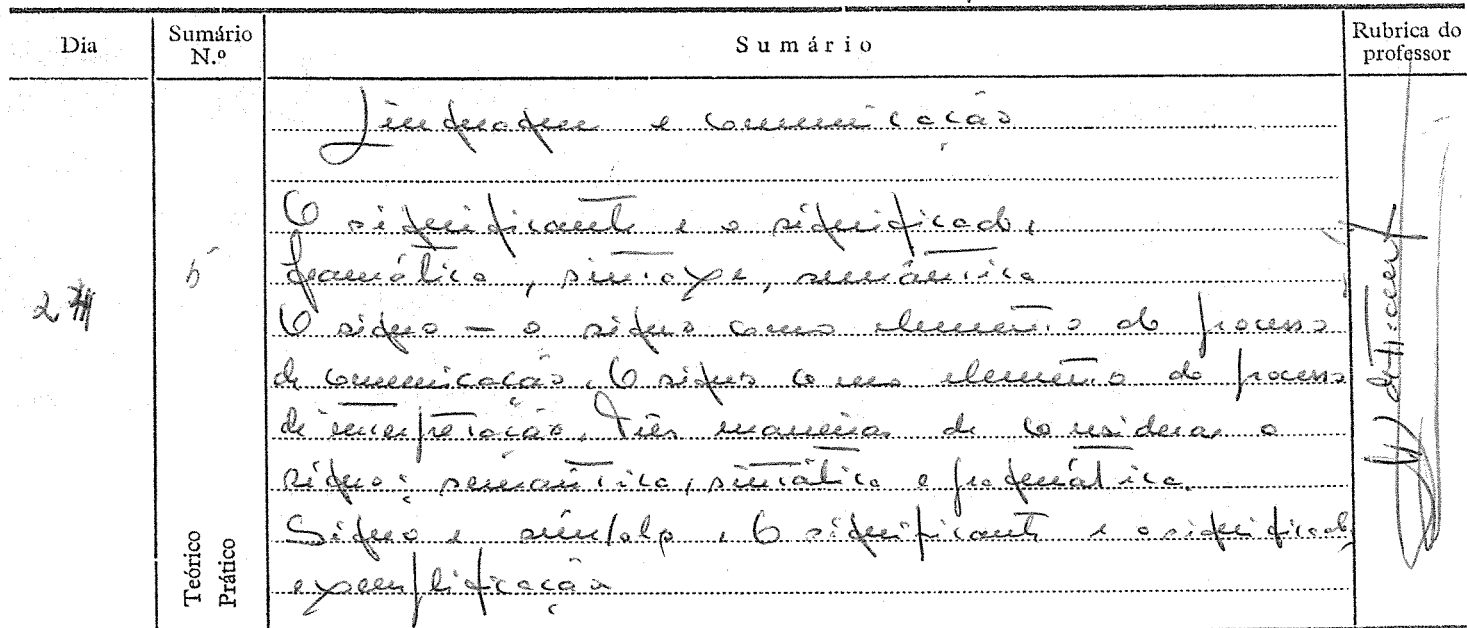 Dia Sumário N.º Sumário Rubrica do professor
Linguagem e comunicação
O significante e o significado.
Gramática, sintaxe, semântica
5
O signo - o signo como elemento do processo
de comunicação. O signo como elemento do processo
de interpretação. Três maneiras de considerar o
signo: semântica, sintática e pragmática.
Signo e símbolo. O significante e o significado,
exemplificação
Teórico
Prático